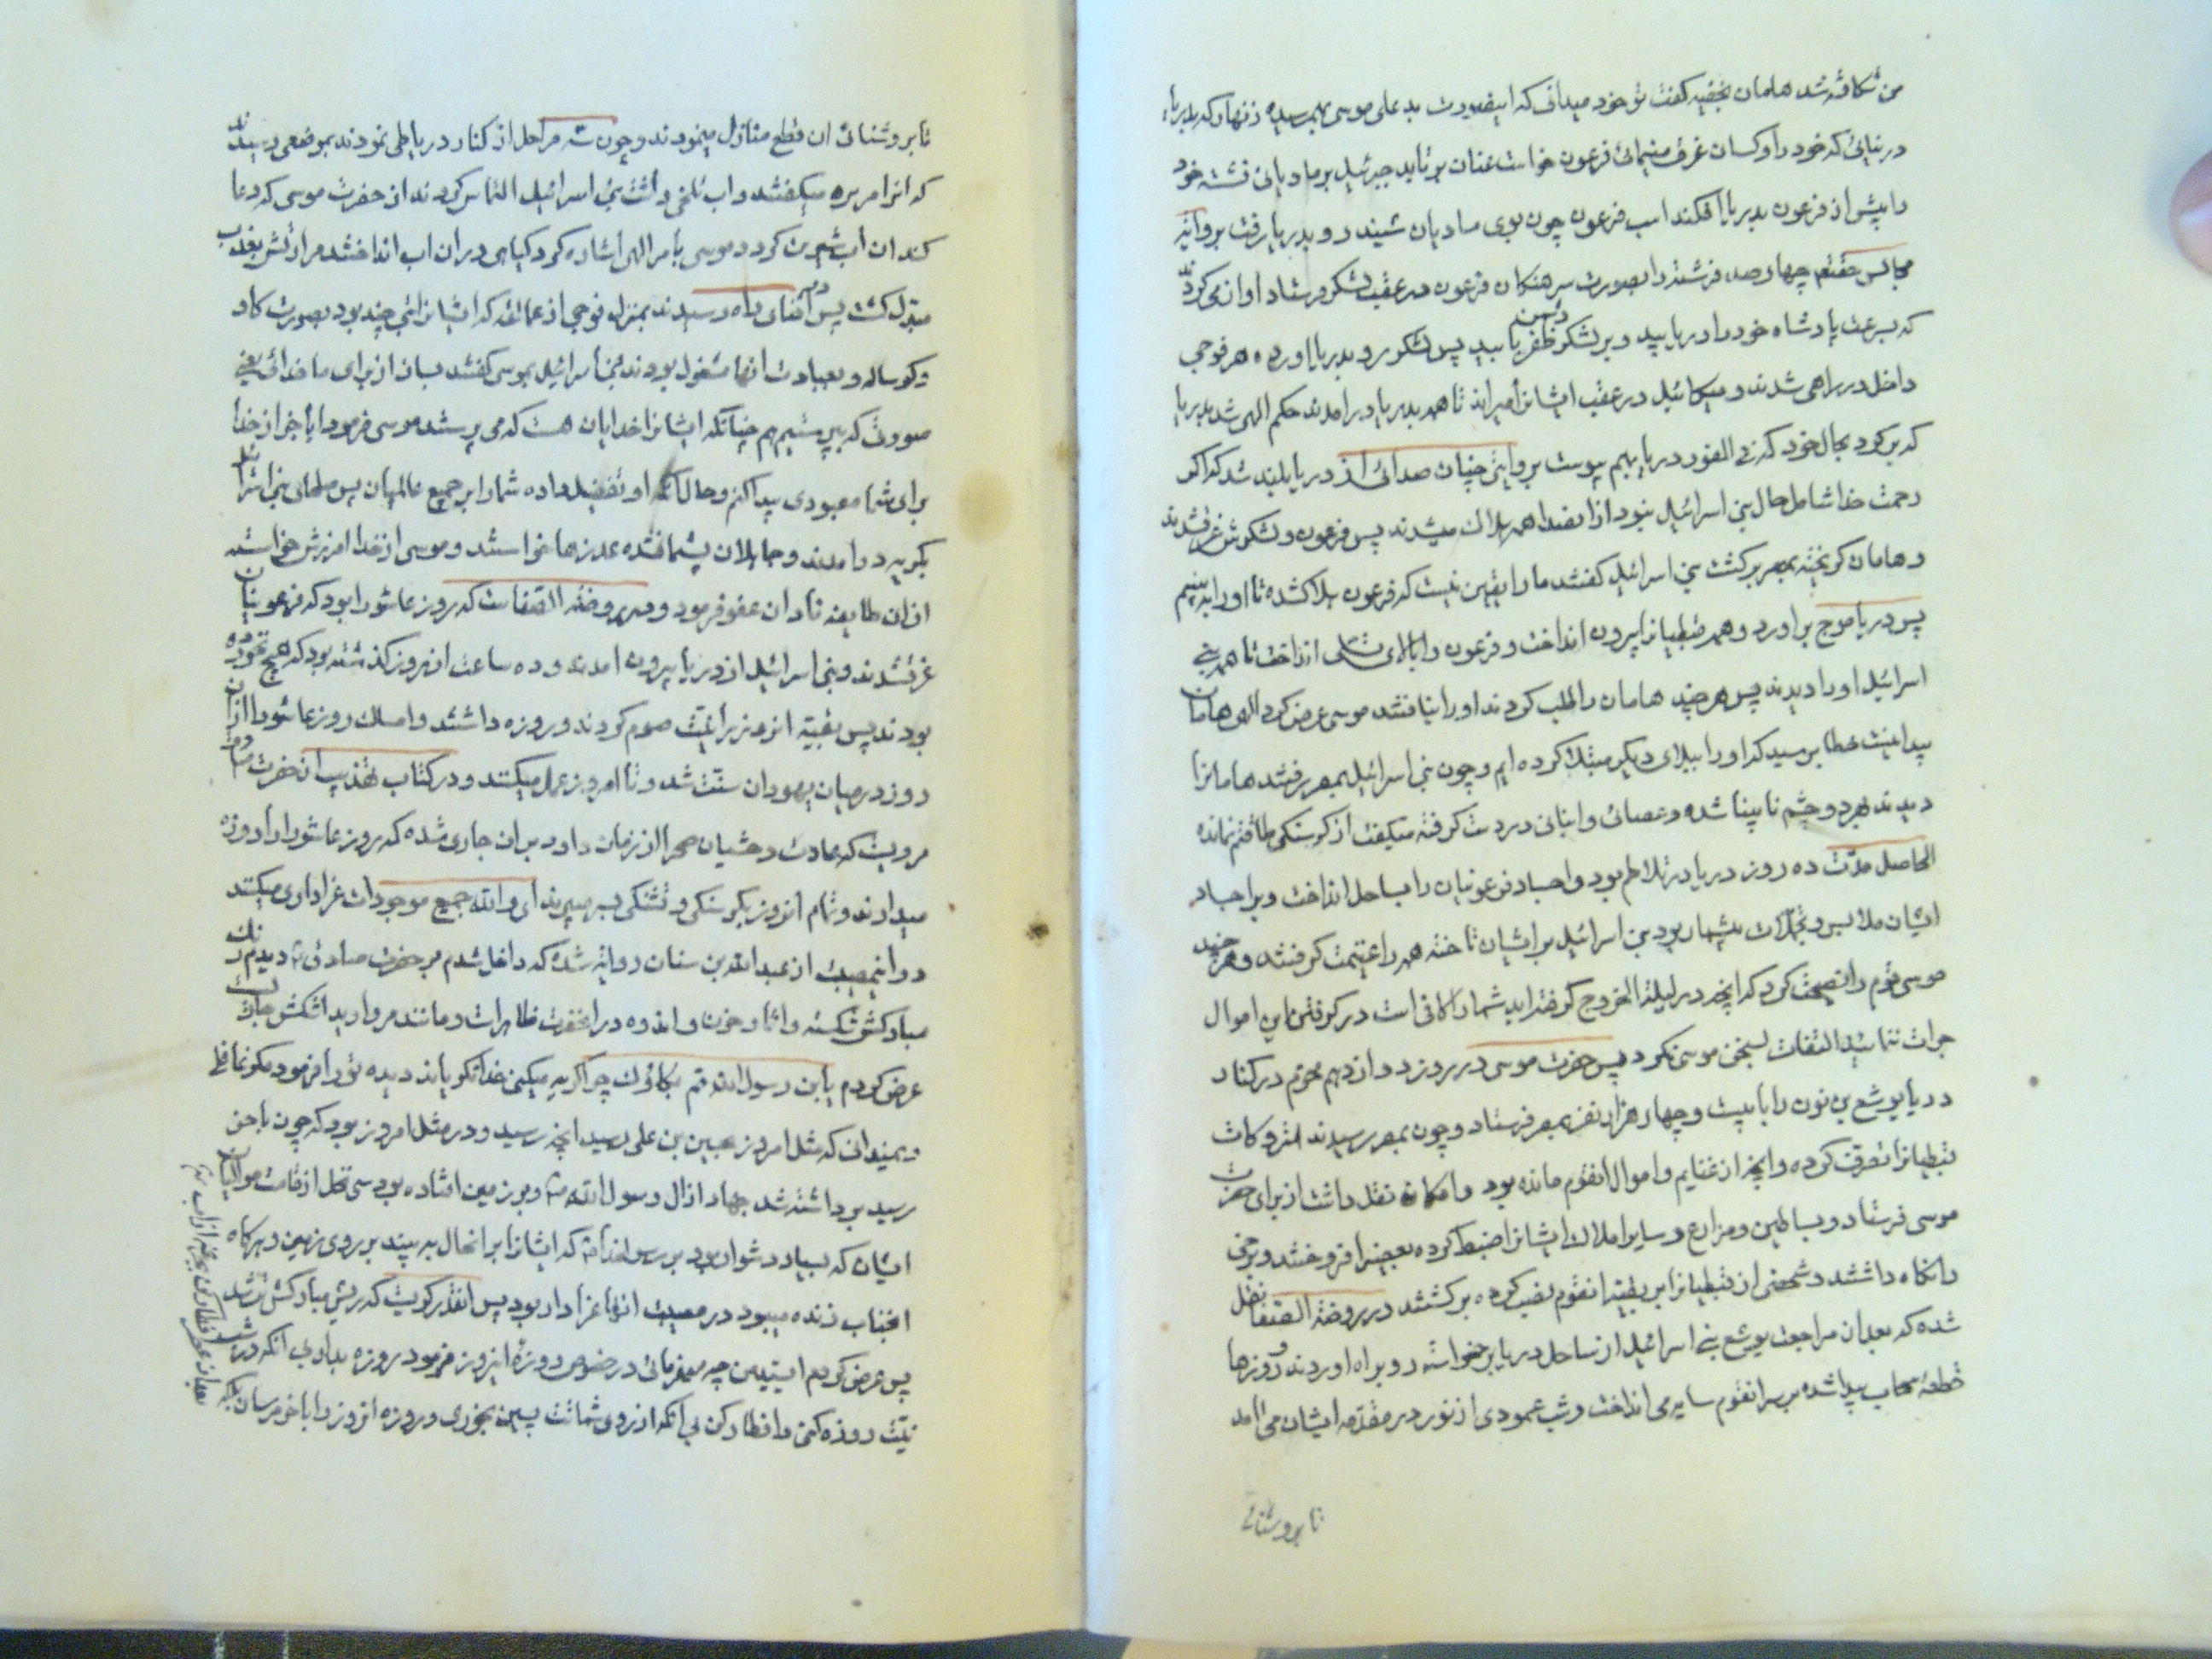 من شکافته شد هامان بخفیه کفت تو خود میدانی که اینصورت بدعای موسی بهم رسیده زنهار که بدریا
در نیائی که خود را و کسان غرق مینمائی فرعون خواست عنان بر تابد جبرئیل بر مادیانی نشسته خود
را پیش از فرعون بدریا افکند اسب فرعون چون بوی مادیان شنید رو بدریا رفت بروایة
مجالس حقتعم چهارصد فرشته را بصورت سرهنکان فرعون در عقب لشکر فرستاد اواز می کردند
که بسرعت پادشاه خود را دریابید و بر لشکر دشمن ظفر یابید پس لشکر رو بدریا اورده هر فوجی
داخل در راهی شدند و میکائیل در عقب ایشان میراند تا همه بدریا درامدند حکم الهی شد بدریا
که برکرد بحال خود که فی الفور دریا بهم پیوست بروایتی چنان صدائی از دریا بلند شد که اکر
رحمت خدا شامل حال بنی اسرائیل نبود از انصدا همه هلاک میشدند پس فرعون و لشکرش غرق شدند
و هامان کریخته بمصر برکشت بنی اسرائیل کفتند ما را یقین نیست که فرعون هلاک شده تا او را نه بینیم
پس دریا موج براورد و همه قبطیانرا بیرون انداخت و فرعون را بالای تلی انداخت تا همه بنی
اسرائیل او را دیدند پس هر چند هامان را طلب کردند او را نیافتند موسی عرض کرد الهی هامان
پیدا نیست خطاب رسید که او را ببلای دیکر مبتلا کرده ایم و چون بنی اسرائیل بمصر رفتند هامانرا
دیدند بهر دو چشم نابینا شده و عصائی و انبانی در دست کرفته میکفت از کرسنکی طاقتم نمانده
الحاصل مدّت ده روز دریا در تلاطم بود و اجساد فرعونیان را بساحل انداخت و بر اجساد
ایشان ملابس و تجملات بیشمار بود بنی اسرائیل بر ایشان تاخته همه را غنیمت کرفتند و هر چند
موسی قوم را نصیحت کرد که انچه در لیلة الخروج کرفته اید شما را کافی است در کرفتن این اموال
جرات ننمائید التفات بسخن موسی نکردند پس حضرت موسی در روز دوازدهم محرم در کنار
دریا یوشع بن نون را با بیست و چهار هزار نفر بمصر فرستاد و چون بمصر رسیدند متروکات
قبطیانرا تصرف کرده و انچه از غنایم و اموال انقوم مانده بود و امکان نقل داشت از برای حضرت
موسی فرستاد و بساطین و مزارع و سایر املاک ایشانرا ضبط کرده بعضیرا فروختند و برخی
را نکاه داشتند و شخصی از قبطیانرا بر بقیة انقوم نصب کرده برکشتند در روضة الصفا نقل
شده که بعد از مراجعت یوشع بنی اسرائیل از ساحل دریا برخواسته رو براه اوردند و روزها
قطعهٔ سحاب پیدا شده بر سر انقوم سایه می انداخت و شب عمودی از نور در مقدمه ایشان می امد
تا بروشنائی
تا بروشنائی ان قطع منازل مینمودند و چون سه مراحل از کنار دریا طی نمودند بموضعی رسیدند
که انرا مره میکفتند و اب تلخی داشت بنی اسرائیل التماس کردند از حضرت موسی که دعا
کند ان اب شیرین کردد موسی بامر الهی اشاره کرد کیاهی در ان اب انداختند مرارتش بعذب
مبدل کشت پس در اثنای راه رسیدند بمنزل فوجی از عمالقه که ایشانرا بتی چند بود بصورت کاو
و کوساله و بعبادت انها مشغول بودند بنی اسرائیل بموسی کفتند بساز از برای ما خدائی یعنی
صورتی که بپرستیم هم چنانکه ایشانرا خدایان هست که می پرستند موسی فرمود ایا غیر از خدا
برای شما معبودی پیدا کنم و حال آنکه او تفضیل داده شما را بر جمیع عالمیان پس صلحای بنی اسرائیل
بکریه درامدند و جاهلان پشیمان شده عذرها خواستند و موسی از خدا امرزش خواسته
از ان طایفه نادان عفو فرمود و در روضة الصفا است که روز عاشورا بود که فرعونیان
غرق شدند و بنی اسرائیل از دریا بیرون امدند و ده ساعت از روز کذشته بود که هیچ نخورده
بودند پس بقیه انروز نیت صوم کردند و روزه داشتند و امساک روز عاشورا از ان
روز در میان یهودان سنت شد و تا امروز عمل میکنند و در کتاب تهذیب از حضرت صادق
مرویست که عادت وحشیان صحرا از زمان داود بر ان جاری شده که روز عاشورا را روزه
میدارند و تمام انروز بکرسنکی و تشنکی بسر میبرند ای والله جمیع موجودات عزاداری میکنند
در انمصیبت از عبدالله بن سنان روایة شده که داخل شدم بر حضرت صادق ع دیدم رنک
مبارکش شکسته و اثار حزن و اندوه در انحضرت ظاهر است و مانند مروارید اشکش جاری است
عرض کردم یابن رسول الله مم بکاؤک چرا کریه میکنی خدا نکریاند دیده تو را فرمود مکر غافلی
و نمیدانی که مثل امروز بحسین بن علی رسید انچه رسید و در مثل امروز بود که چون باخر
رسید برداشته شد جهاد از ال رسول الله ص و بر زمین افتاده بود سی تن از قامت موالیان
ایشان که بسیار دشوار بود بر رسولخدا ص که ایشانرا بر انحال به بیند بر روی زمین و هرکاه
انجناب زنده میبود در مصیبت انها عزادار بود پس انقدر کریست که ریش مبارکش تر شد
پس عرض کردم ای سید من چه میفرمائی در خصوص روزهٔ اینروز فرمود روزه بدار بی انکه در شب
نیت روزه کنی و افطار کن بی آنکه از روی شماتت چیزی بخوری و روزه انروز را باخر مرسان بلکه
بعد از عصر افطار کن بجرعه از اب